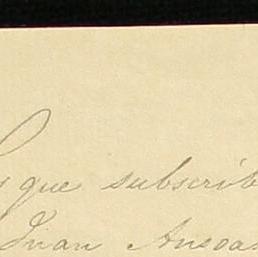 que subscrib
Juan Ansoa